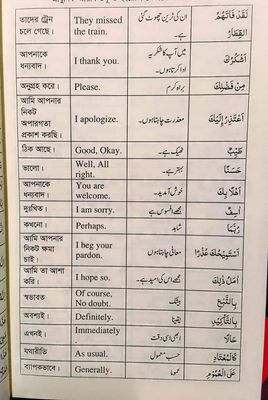 তাদের ট্রেন They missed ان کی ٹرین چھوٹ گئی لَقَدْ فَاتَهُمُ
চলে গেছে। the train. ہے۔ الْقِطَارُ
আপনাকে I thank you. میں آپ کا شکریہ أَشْكُرُكَ
ধন্যবাদ। ادا کرتا ہوں۔
অনুগ্রহ করে। Please. براہ کرم مِنْ فَضْلِكَ
আমি আপনার I apologize. معذرت چاہتا ہوں۔ أَعْتَذِرُ إِلَيْكَ
নিকট
অপারগতা
প্রকাশ করছি।
ঠিক আছে। Good, Okay. ٹھیک ہے۔ طَيِّبٌ
ভালো। Well, All بہتر ہے۔ حَسَنًا
right.
আপনাকে You are خوش آمدید۔ أَهْلًا بِكَ
ধন্যবাদ। welcome.
দুঃখিত। I am sorry. مجھے افسوس ہے آسِفٌ
কখনো। Perhaps. شاید رُبَّمَا
আমি আপনার I beg your معافی چاہتا ہوں أَسْتَمِيحُكَ عُذْرًا
নিকট ক্ষমা pardon.
চাই।
আমি তা আশা I hope so. مجھے اس کی امید ہے۔ آمُلُ ذٰلِكَ
করি।
স্বভাবত Of course, بیشک بِالطَّبْعِ
No doubt.
অবশ্যই। Definitely. یقینا بِالتَّأْكِيْدِ
এখনই। Immediately ابھی اسی وقت حَالًا
.
যথারীতি As usual. حسب معمول كَالْمُعْتَادِ
ব্যাপকভাবে। Generally. عموما عَلَى الْعُمُوْمِ